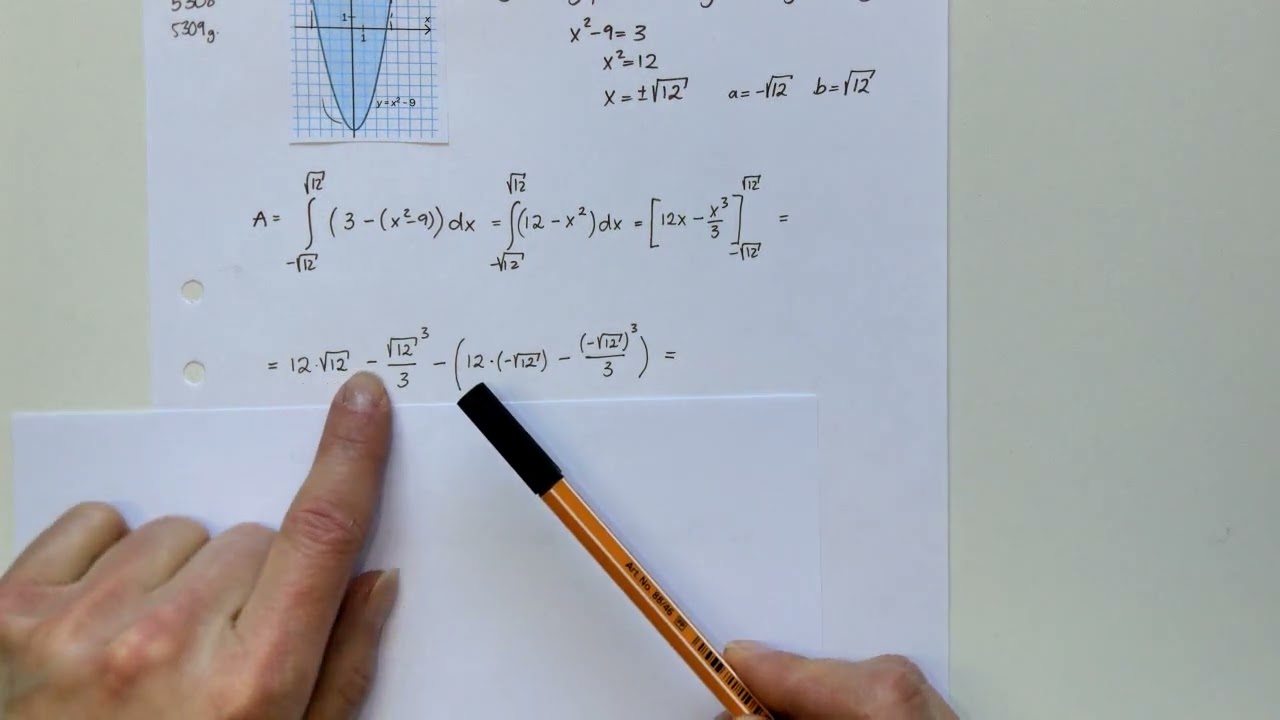 5308
5309g.
1
x
1
y=x²-9
x²-9=3
x²=12
x=±√12 a=-√12 b=√12
A= ∫_{-√12}^{√12} (3-(x²-9))dx = ∫_{-√12}^{√12} (12-x²)dx = [12x - x³/3]_{-√12}^{√12} =
= 12·√12 - √12³/3 - (12·(-√12) - (-√12)³/3) =
Art No. 88/46